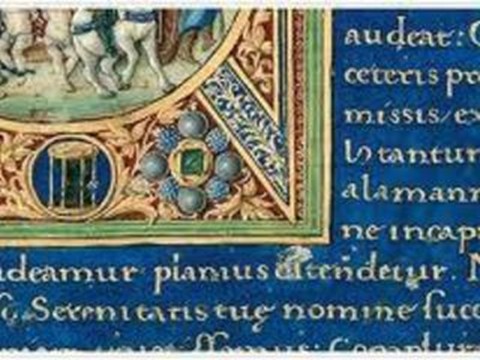 audeat: C
ceteris pr
missis/ex
tantur
alamann
ne incap
deamur planius ostendetur. N
Serenitatis tuę nomine succ